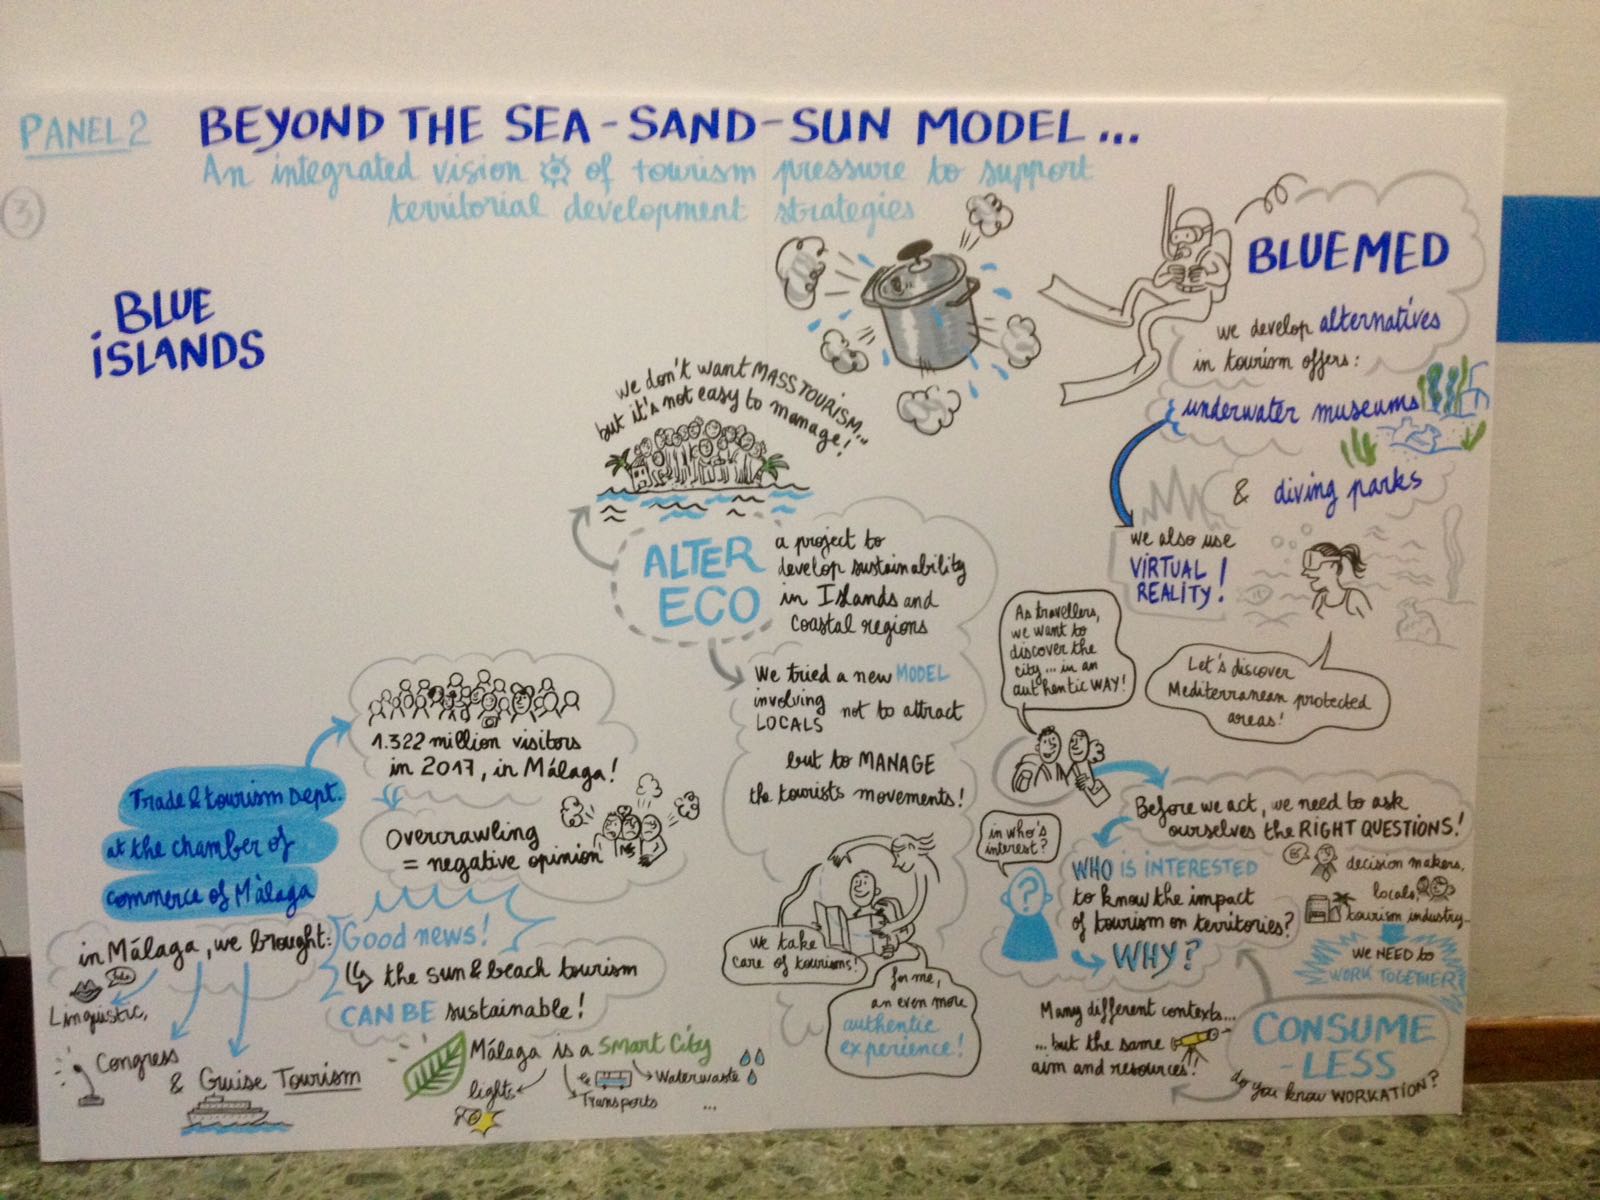 PANEL 2
BEYOND THE SEA-SAND-SUN MODEL...
An integrated vision of tourism pressure to support
territorial development strategies
3
BLUE
ISLANDS
Trade & tourism Dept.
at the chamber of
commerce of Málaga
1.322 million visitors
in 2017, in Málaga!
Overcrawling
= negative opinion
in Málaga, we brought:
Linguistic,
Congress
& Cruise Tourism
Good news!
the sun & beach tourism
CAN BE sustainable!
Málaga is a Smart City
lights
Transports
Waterwaste
...
we don't want MASS TOURISM...
but it's not easy to manage!
ALTER
ECO
a project to
develop sustainability
in Islands and
coastal regions
We tried a new MODEL
involving
LOCALS not to attract
but to MANAGE
the tourists movements!
we take
care of tourisms!
for me,
an even more
authentic
experience!
BLUEMED
we develop alternatives
in tourism offers:
underwater museums
& diving parks
we also use
VIRTUAL
REALITY!
Let's discover
Mediterranean protected
areas!
As travellers,
we want to
discover the
city... in an
authentic WAY!
Before we act, we need to ask
ourselves the RIGHT QUESTIONS!
in who's
interest?
?
WHO IS INTERESTED
to know the impact
of tourism on territories?
WHY?
decision makers,
locals,
tourism industry...
WE NEED TO
WORK TOGETHER
Many different contexts...
...but the same
aim and resources!
CONSUME
-LESS
do you know WORKATION?